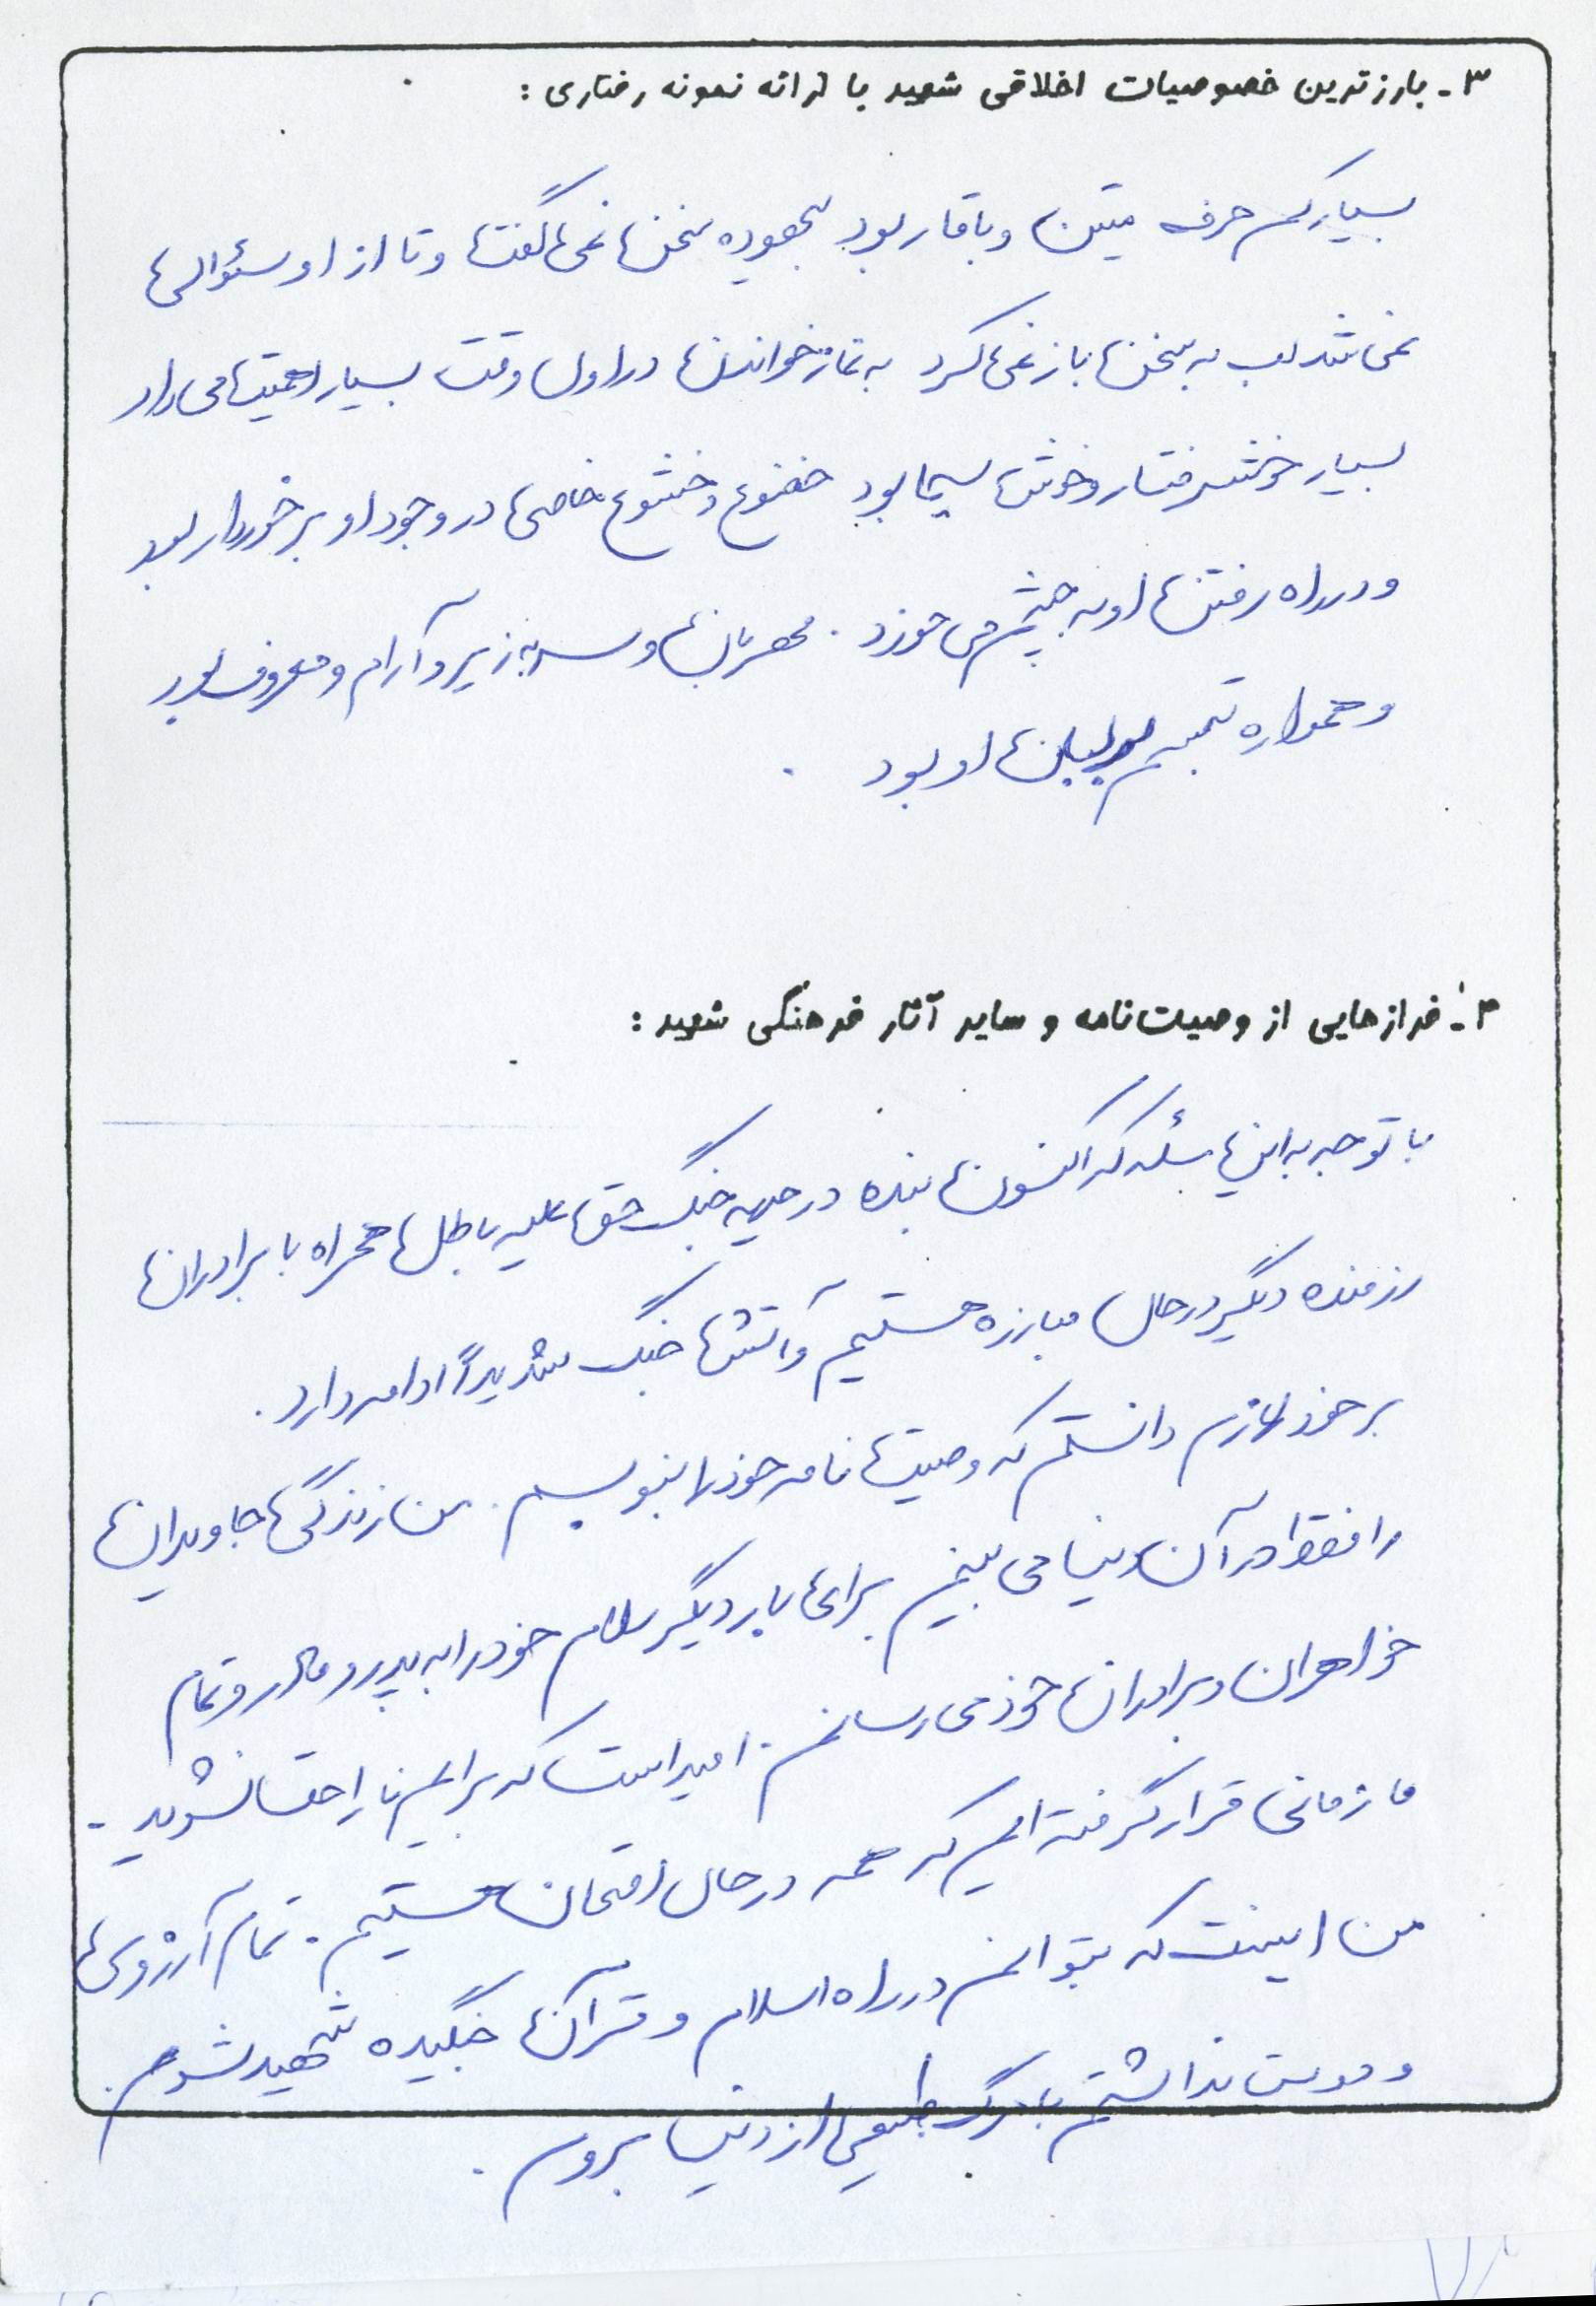 ۳- بارزترین خصوصیات اخلاقی شهید با ارائه نمونه رفتاری :
بسیار کم حرف متین و باقار بود بیهوده سخن نمی گفت و تا از او سئوالی
نمی شد لب به سخن باز نمی کرد به نماز خواندن در اول وقت بسیار اهمیت می داد
بسیار خوش رفتار و خوش سیما بود خضوع و خشوع خاصی در وجود او برخوردار بود
و در راه رفتن او به چشم می خورد . مهربان و سر به زیر و آرام و معروف بود
و همواره تبسم بر لبان او بود .
۴- فرازهایی از وصیت‌نامه و سایر آثار فرهنگی شهید :
با توجه به این مسئله که اکنون بنده در جبهه جنگ حق علیه باطل همراه با برادران
رزمنده دیگر در حال مبارزه هستیم و آتش جنگ شدیداً ادامه دارد .
بر خود لازم دانستم که وصیت نامه خود را بنویسم . من زندگی جاویدان
را فقط در آن دنیا می بینم برای بار دیگر سلام خود را به پدر و مادر و تمام
خواهران و برادران خود می رسانم . امید است که برایم ناراحت نشوید .
ما زمانی قرار گرفته ایم که همه در حال امتحان هستیم . تمام آرزوی
من اینست که بتوانم در راه اسلام و قرآن جنگیده شهید شوم .
و دوست نداشتم با مرگ طبیعی از دنیا بروم .